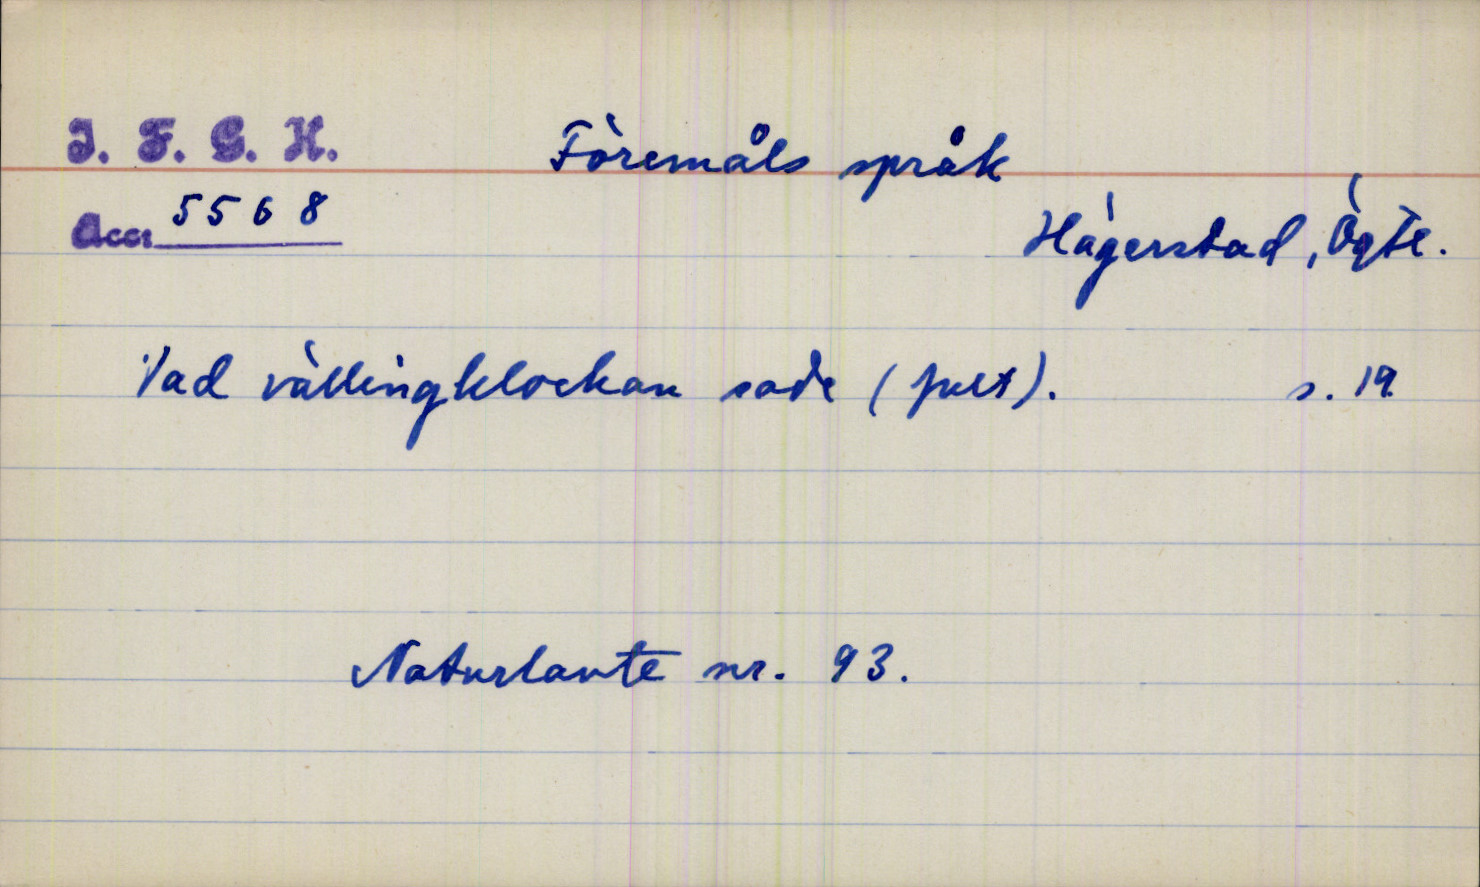 I. F. G. H.
Föremåls språk
Acc. 5568
Hägerstad, Ögtl.
Vad vällingklockan sade (jult). s. 19
Naturlaute nr. 93.